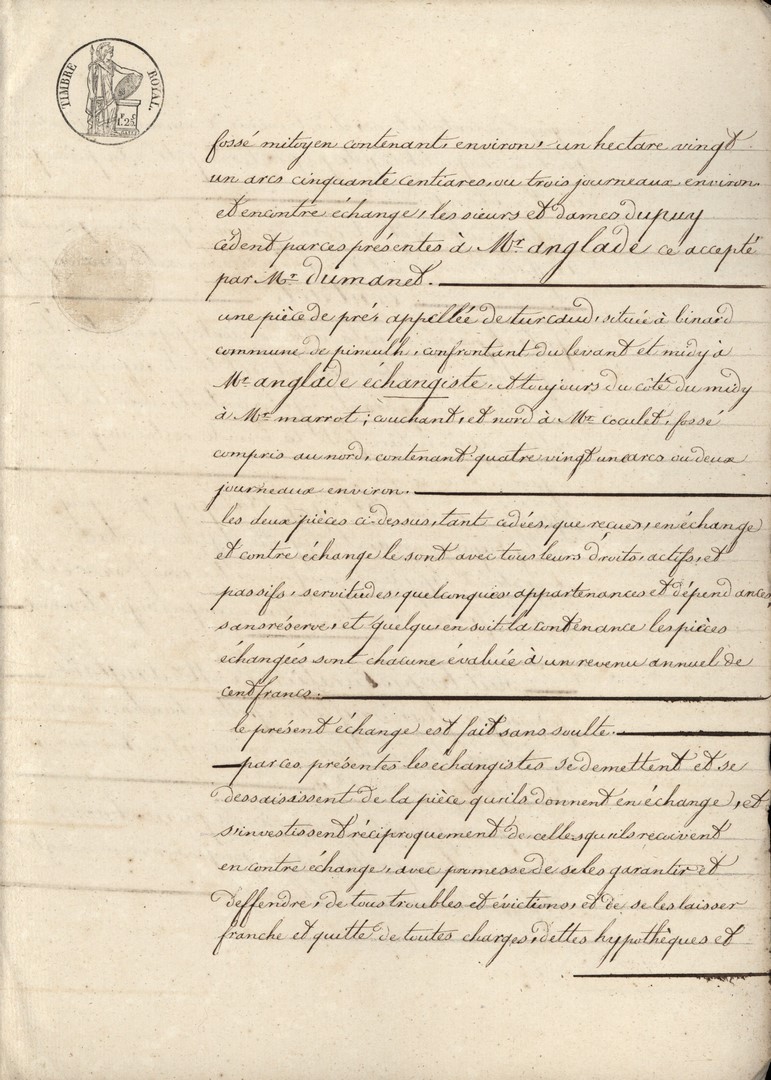 TIMBRE ROYAL
1.25
fossé mitoyen contenant, environ, un hectare vingt
un arcs cinquante centiares, ou trois journeaux environ.
et encontre échange, les sieurs et dames dupuy
cèdent par ces présentes à Mr. anglade ce accepté
par Mr. dumanet.
une pièce de pré, appellée de turcaud, située à binard
commune de pineuilh, confrontant du levant et midy à
Mr. anglade échangiste, et toujours du côté du midy
à Mr. marrot; couchant, et nord à Mr. coculet, fossé
compris au nord, contenant quatre vingt un arcs ou deux
journeaux environ.
les deux pièces ci-dessus, tant cédées, que reçues, en échange
et contre échange le sont avec tous leurs droits, actifs, et
passifs, servitudes, quelconques, appartenances et dépendances,
sans réserve, et quelqu'en soit la contenance les pièces
échangées sont chacune évaluée à un revenu annuel de
cent francs.
le présent échange est fait sans soulte.
par ces présentes les échangistes se demettent et se
dessaisissent de la pièce qu'ils donnent en échange, et
s'investissent réciproquement de celles qu'ils reçoivent
en contre échange, avec promesse de se les garantir et
deffendre, de tous troubles et évictions, et de se les laisser
franche et quitte de toutes charges, dettes hypothèques et